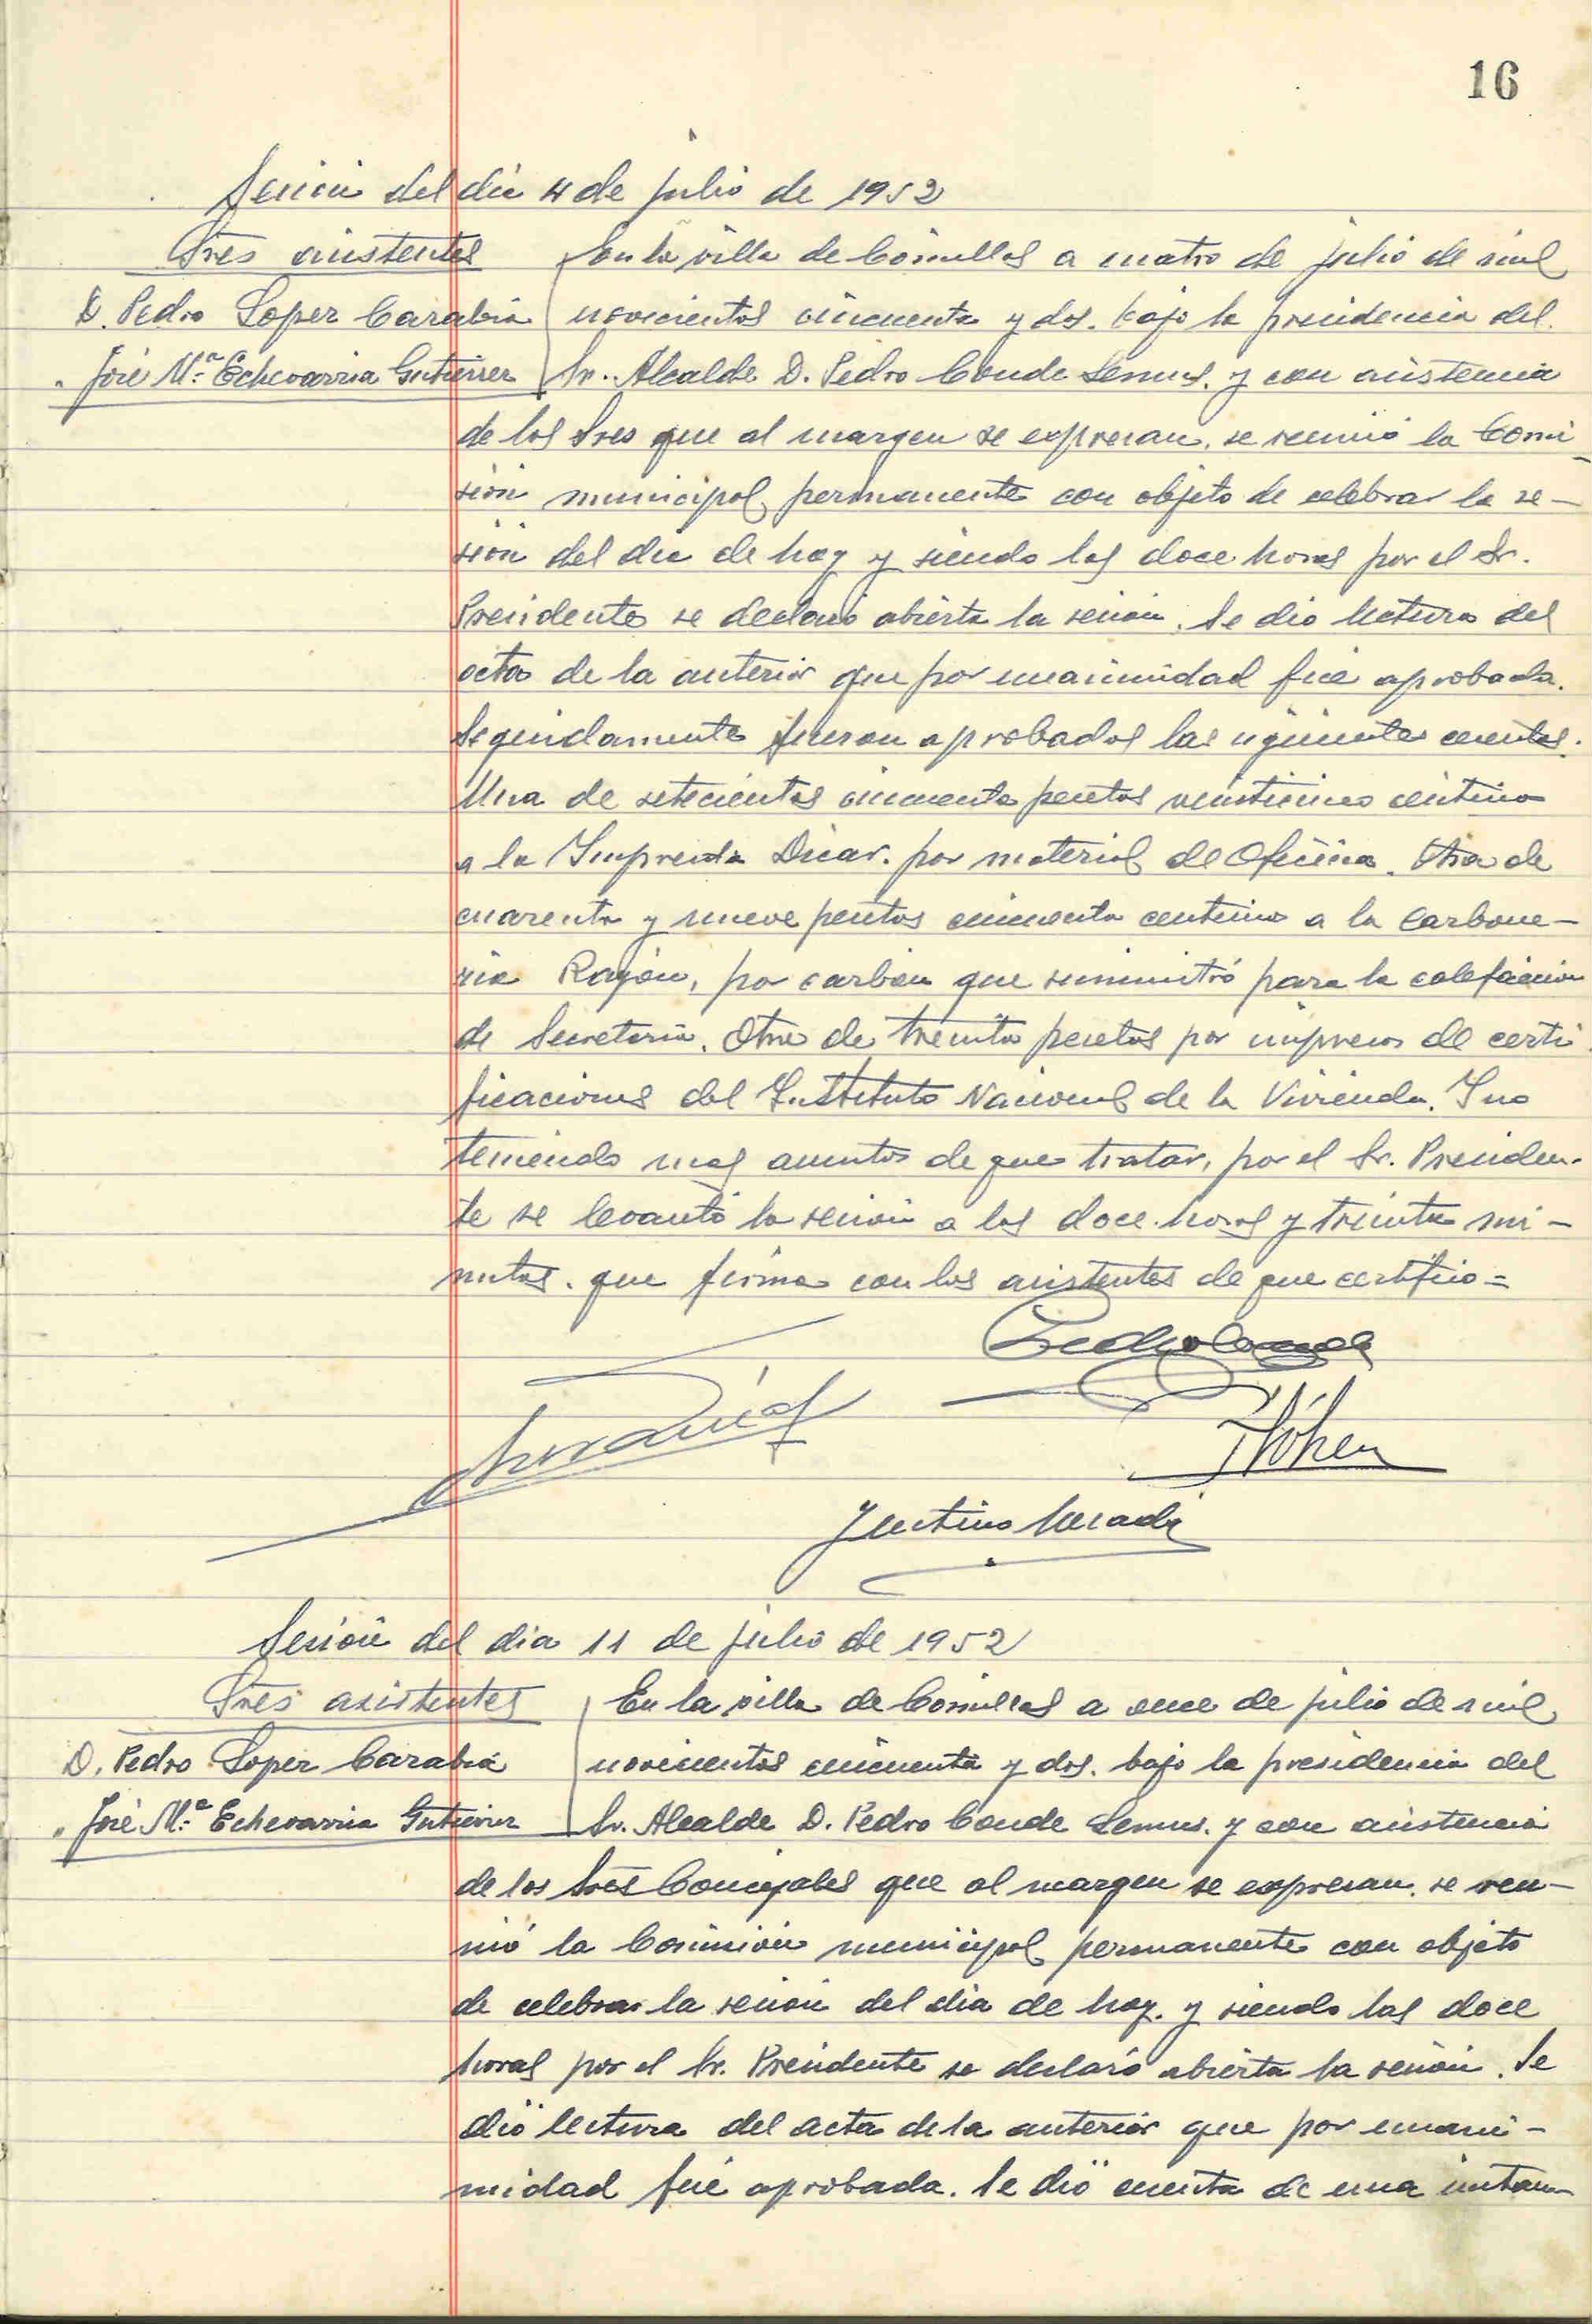 16
Sesión del dia 4 de julio de 1952
Sres asistentes
D. Pedro Lopez Carabia
" José Mª Echevarria Gutierrez
En la villa de Comillas a cuatro de julio de mil
novecientos cincuenta y dos. bajo la presidencia del
Sr. Alcalde D. Pedro Conde Lemus. y con asistencia
de los Sres que al margen se expresan. se reunió la Comi
sión municipal permanente con objeto de celebrar la se-
sión del dia de hoy y siendo las doce horas por el Sr.
Presidente se declaró abierta la sesión. Se dio lectura del
acta de la anterior que por unanimidad fué aprobada.
Seguidamente fueron aprobadas las siguientes cuentas.
Una de setecientas cincuenta pesetas veinticinco céntimos
a la Imprenta Dicar. por material de Oficina. Otra de
cuarenta y nueve pesetas cincuenta centimos a la carbone-
ria Rayón, por carbón que suministró para la calefacción
de Secretaria. Otra de treinta pesetas por impresos de certi
ficaciones del Instituto Nacional de la Vivienda. Y no
teniendo mas asuntos de que tratar, por el Sr. Presiden-
te se levantó la sesión a las doce horas y treinta mi-
nutos. que firma con los asistentes de que certifico=
Pedro Conde
Sesión del dia 11 de julio de 1952
Sres asistentes
D. Pedro Lopez Carabia
" José Mª Echevarria Gutierrez
En la villa de Comillas a once de julio de mil
novecientos cincuenta y dos. bajo la presidencia del
Sr. Alcalde D. Pedro Conde Lemus. y con asistencia
de los Sres Concejales que al margen se expresan. se reu-
nió la Comisión municipal permanente con objeto
de celebrar la sesión del dia de hoy. y siendo las doce
horas por el Sr. Presidente se declaró abierta la sesión. Se
dió lectura del acta de la anterior que por unani-
midad fué aprobada. Se dió cuenta de una instan-